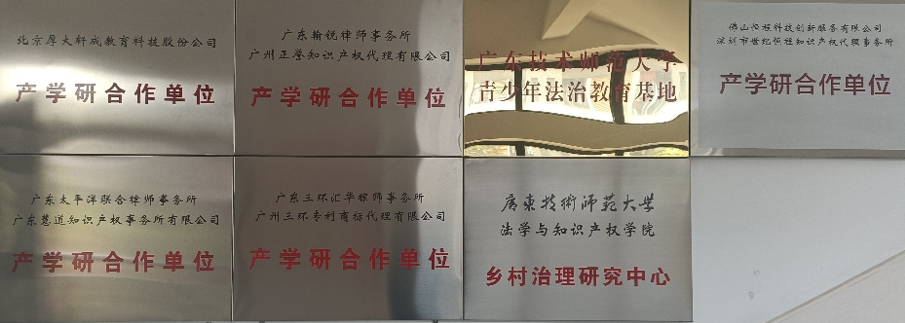 北京厚大轩成教育科技股份公司
产学研合作单位
广东翰锐律师事务所
广州正誉知识产权代理有限公司
产学研合作单位
广东技术师范大学
青少年法治教育基地
佛山恒程科技创新服务有限公司
深圳市世纪恒程知识产权代理事务所
产学研合作单位
广东太平洋联合律师事务所
广东慧道知识产权事务所有限公司
产学研合作单位
广东三环汇华律师事务所
广州三环专利商标代理有限公司
产学研合作单位
廣東技術師范大学
法学与知识产权学院
乡村治理研究中心